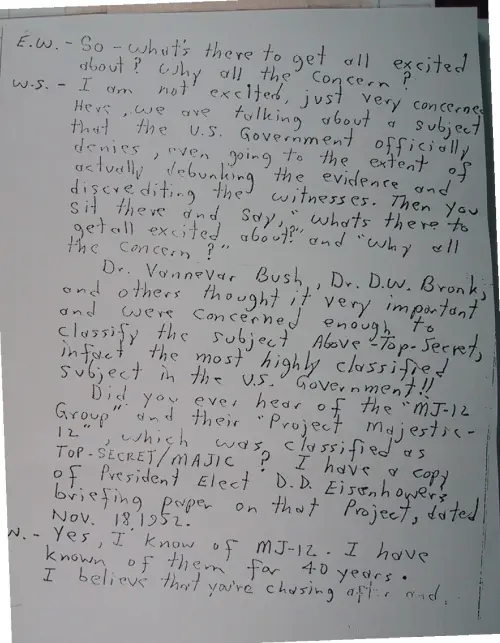 E.W. - So - what's there to get all excited
about? Why all the concern?
W.S. - I am not excited, just very concerned
Here, we are talking about a subject
that the U.S. Government officially
denies, even going to the extent of
actually debunking the evidence and
discrediting the witnesses. Then you
sit there and say, "whats there to
get all excited about?" and "why all
the concern?"
Dr. Vannevar Bush, Dr. D.W. Bronk,
and others thought it very important
and were concerned enough to
classify the subject Above-Top-Secret,
infact the most highly classified
subject in the U.S. Government!!
Did you ever hear of the "MJ-12
Group" and their "Project Majestic-
12", which was classified as
TOP-SECRET/MAJIC? I have a copy
of President Elect D.D. Eisenhowers
briefing paper on that Project, dated
Nov. 18, 1952.
W. - Yes, I know of MJ-12. I have
known of them for 40 years.
I believe that you're chasing after and